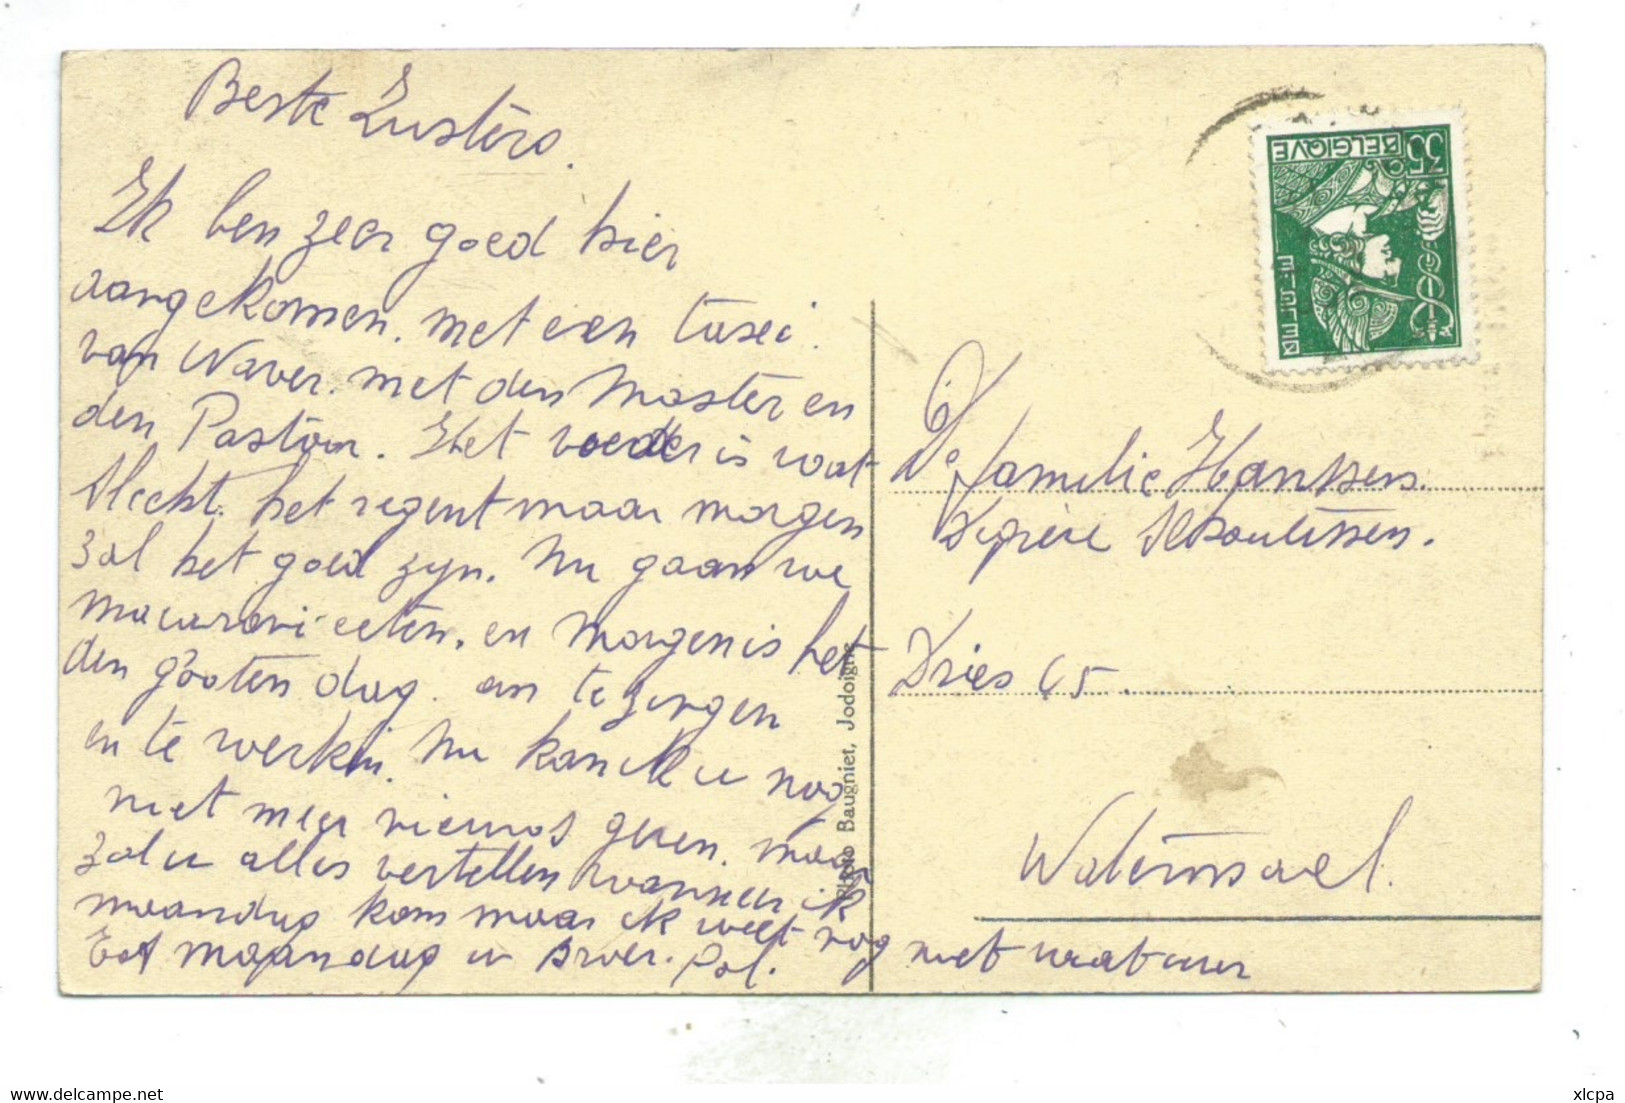 Beste Zusters.
Ik ben zeer goed hier
aangekomen. met een taxei.
van Waver. met den Master en
den Pastoor. Het weder is wat
slecht. het regent maar morgen
zal het goed zyn. Nu gaan we
macaroni eeten. en Morgen is het
den grooten dag. om te zingen
en te werken. Nu kan ik u nog
niet meer nieuws geven. maar
zal u alles vertellen wanneer ik
maandag kom maar ik weet nog niet wat uur
Tot maandag u Broer. Pol.
35
BELGIQVE
De familie Hanssens.
Dries 65.
Watermael.
Photo Baugniet, Jodoigne
xlcpa